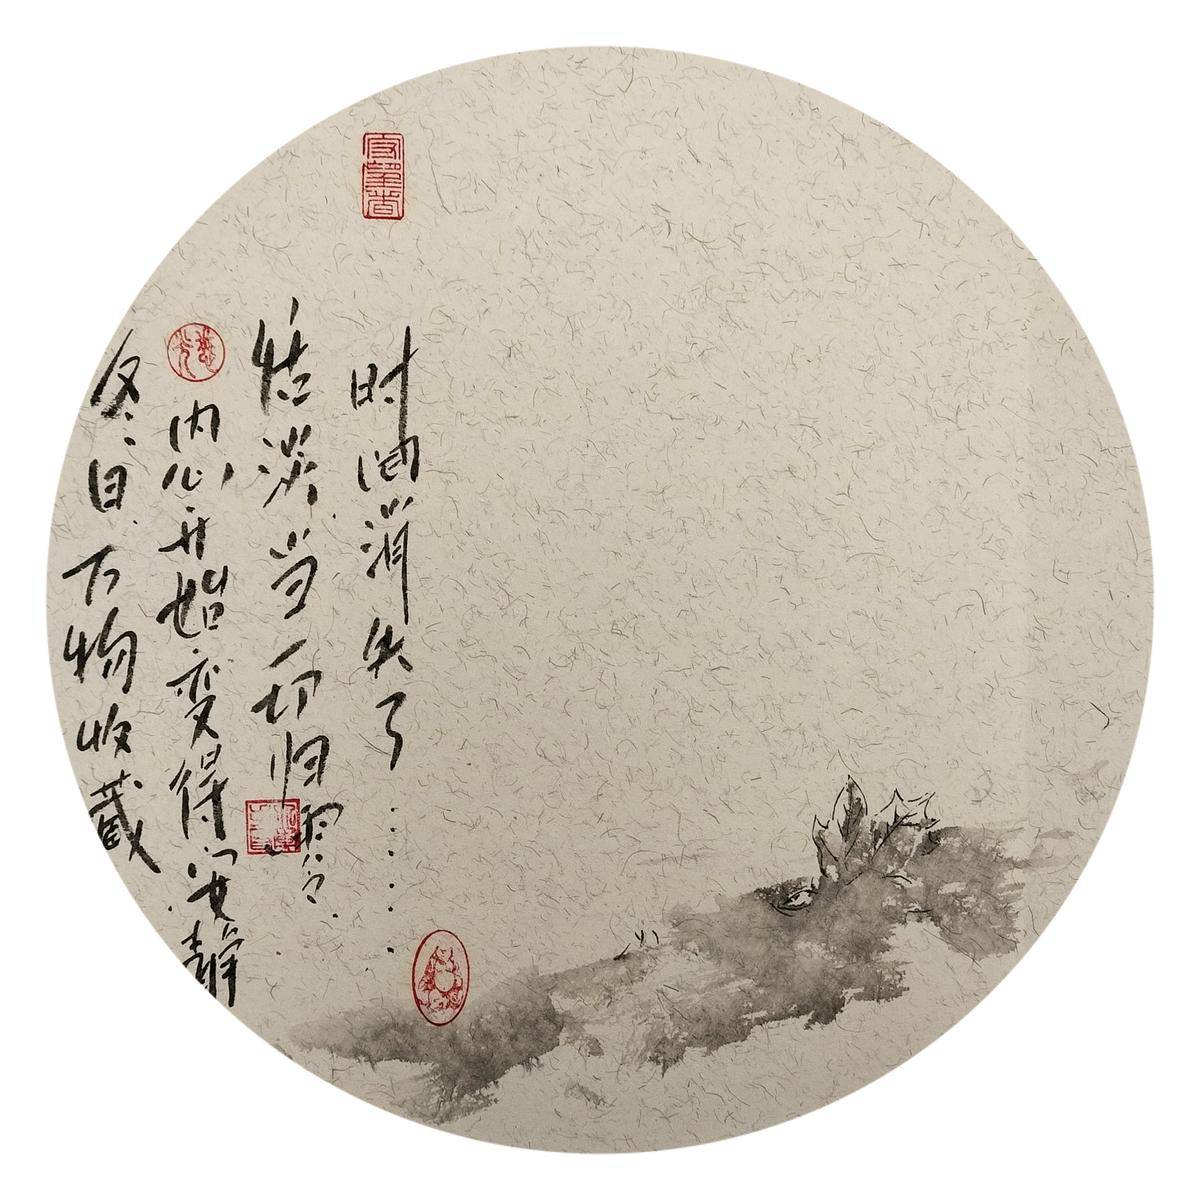 冬日万物收藏
内心开始变得安静
恬淡当一切归零
时间消失了………